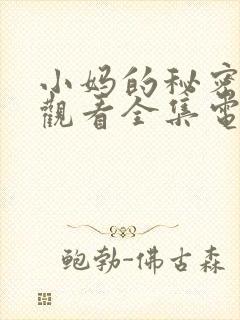 小妈的秘密
觀看全集電
鲍勃-佛古森